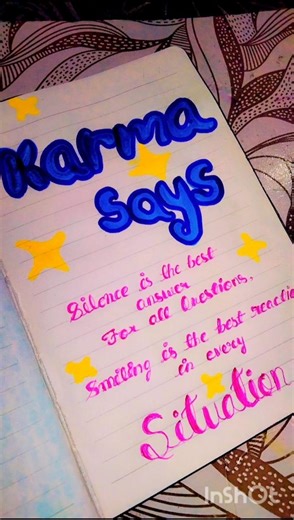 Karma
says
Silence is the best
answer
For all Questions.
Smiling is the best reaction
in every
Situation
InShOt